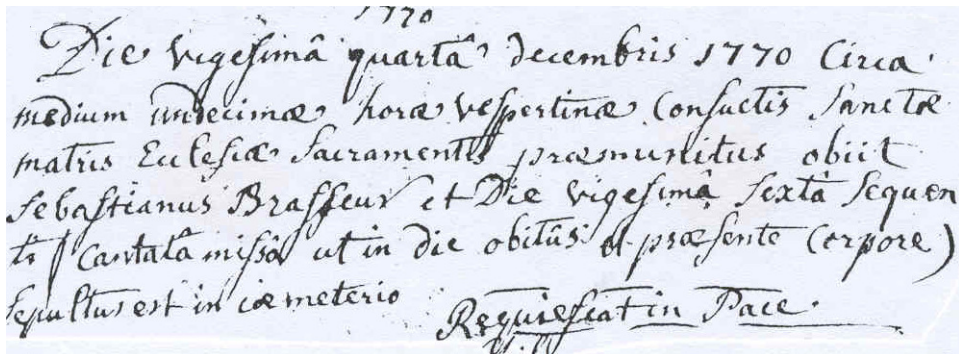 1770
Die vigesimâ quartâ decembris 1770 Circa
medium undecimæ horæ vespertinæ Consuetis Sanctæ
matris Eclesiæ Sacramentis præmunitus obiit
Sebastianus Brasseur et Die vigesimâ Sextâ Sequen
ti ( Cantatâ missâ ut in die obitûs et præsente Corpore )
Sepultus est in cœmeterio
Requiescat in Pace